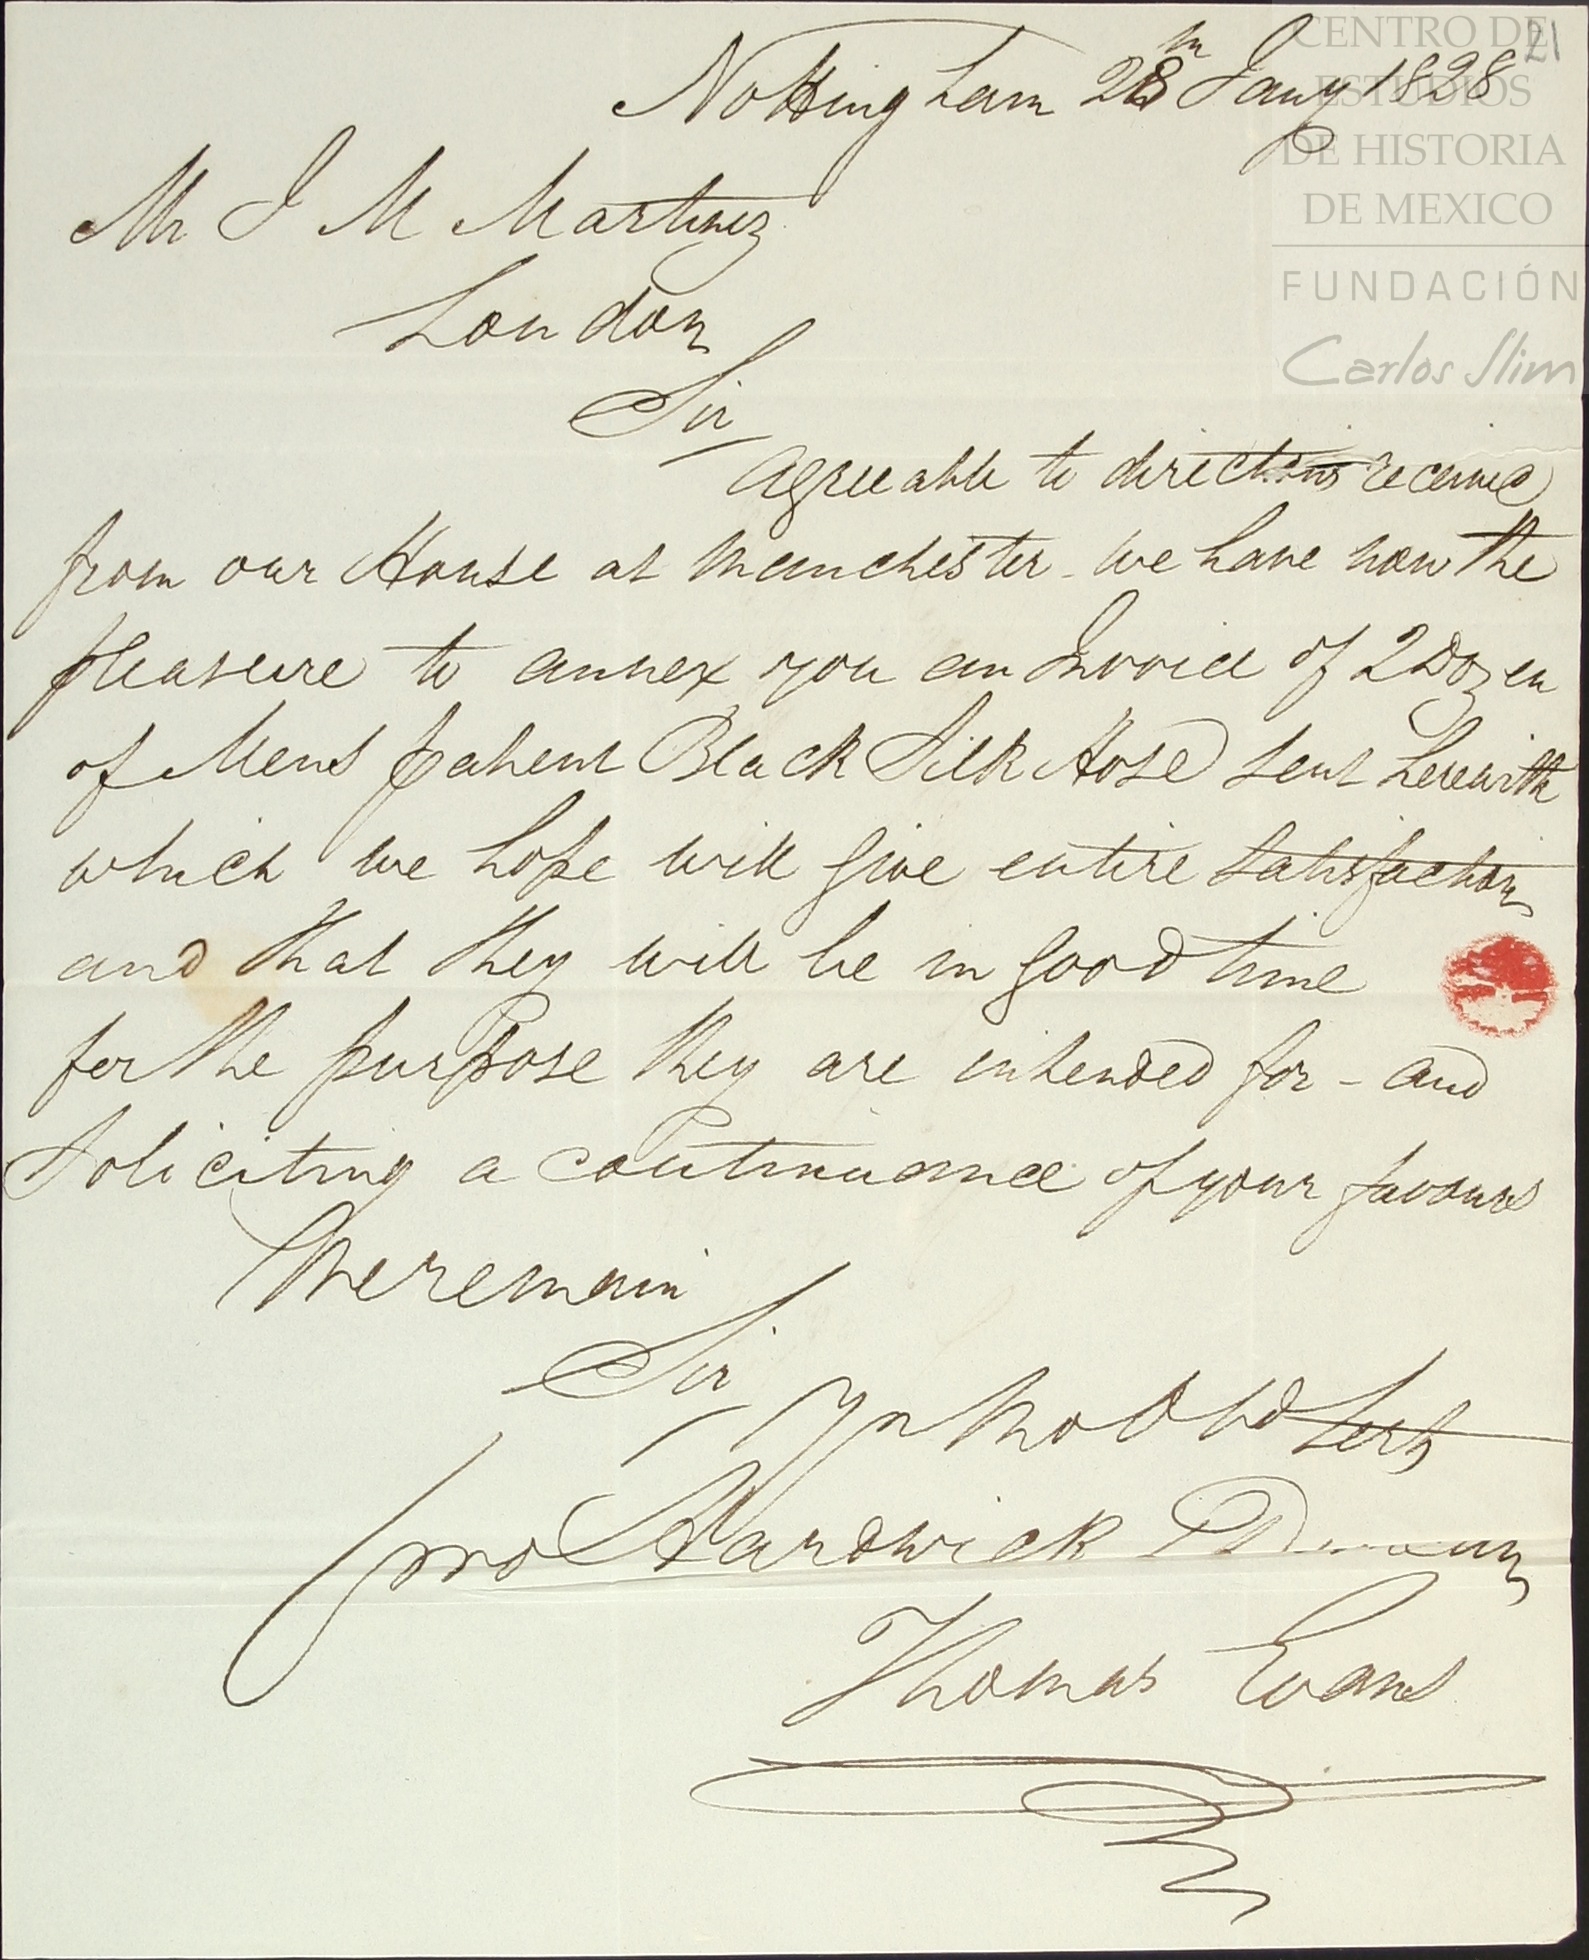 CENTRO DE
ESTUDIOS
DE HISTORIA
DE MEXICO
FUNDACIÓN
Carlos Slim
21
Nottingham 28th Jany 1828
Mr J M Martinez
London
Sir
Agreeable to directions received
from our House at Manchester - we have now the
pleasure to annex you an Invoice of 2 Dozen
of Mens patent Black Silk Hose sent herewith
which we hope will give entire satisfaction
and that they will be in good time
for the purpose they are intended for - and
soliciting a continuance of your favours
We remain
Sir
Yr Mo Obd Serts
pro Hardwick
Thomas Evans